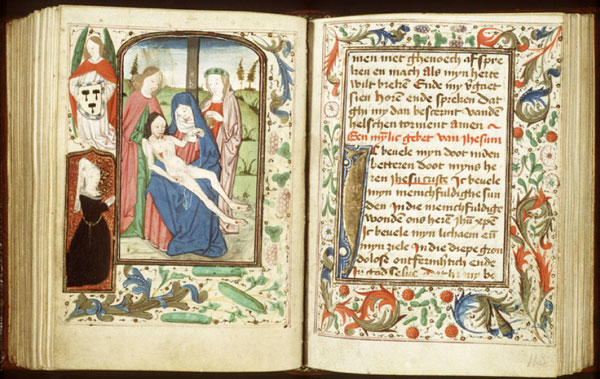 men met ghenoech af spre
ken en mach als myn herte
wilt breken Ende my gheet
sien horen ende spreken dat
ghi my dan bescermt vanden
helschen torment amen
Een mylic gebet van ihesum
Ic beuele myn doot inden
betteren doot myns he
ren ihesu criste Ic beuele
myn menichfuldighe sun
den In die menichfuldige
wonde ons heren
Ic beuele myn lichaem en
myn ziele In die diepe gron
dolose ontfermhtich ende